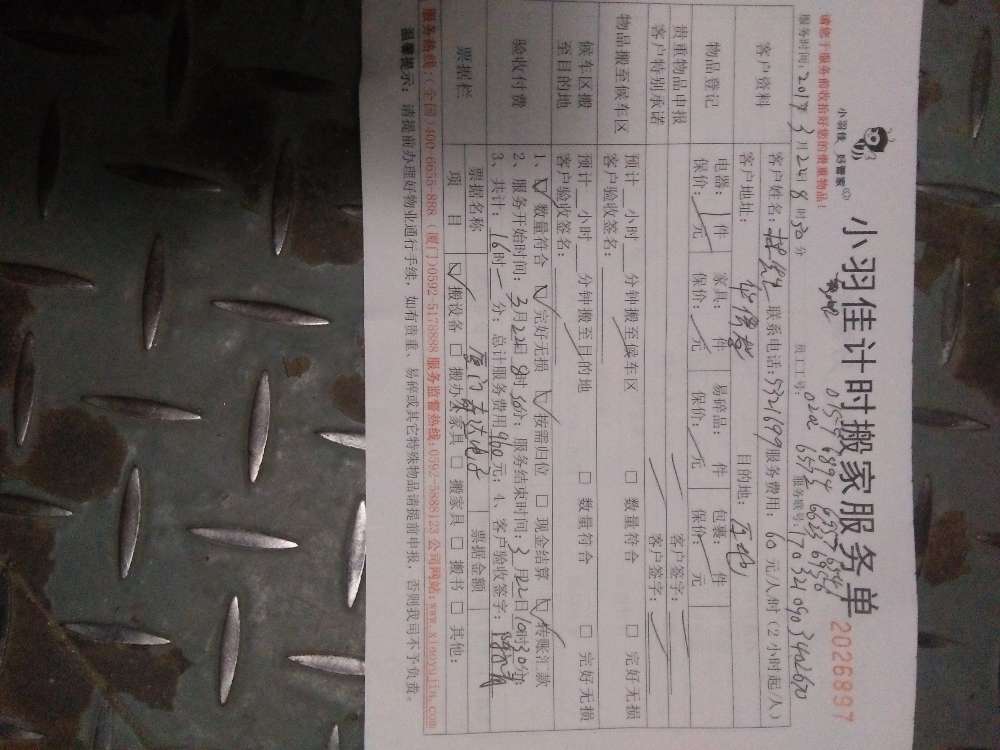 请您于服务前收拾好您的贵重物品!
小羽佳 好管家
小羽佳计时搬家服务单
2026897
服务时间: 2017 3月22日 8时50分
员工工号:
0202 657
服务账号: 17032109034026
客户资料
客户姓名: 联系电话: 5321699 服务费用: 60元/人/时(2小时起/人)
客户地址: 目的地:
物品登记
电器: 1件 家具: 件 易碎品: 件 包裹: 件
保价: 元 保价: 元 保价: 元 保价: 元
贵重物品申报 客户签字:
客户特别承诺 客户签字:
物品搬至候车区
预计 小时 分钟搬至候车区 □ 数量符合 □ 完好无损
客户验收签名:
候车区搬至目的地
预计 小时 分钟搬至目的地 □ 数量符合 □ 完好无损
客户验收签名:
验收付费
1、☑ 数量符合 ☑ 完好无损 ☑ 按需归位 □ 现金结算 ☑ 转账汇款
2、服务开始时间: 3月22日 8时50分; 服务结束时间: 3月22日 10时30分;
3、共计: 16时 一 分; 总计服务费用 960元; 4、客户验收签字:
票据栏
票据名称 厦门 电子 票据金额
项目 ☑ 搬设备 □ 搬办公家具 □ 搬家具 □ 搬书 □ 其他:
服务热线:(全国)400-6655-888 (厦门)0592-5178888 服务监督热线:0592-5888123 公司网站:www.xiaoyujia.com
温馨提示: 请提前办理好物业通行手续, 如有贵重、易碎或其它特殊物品请提前申报, 否则我司不予负责。